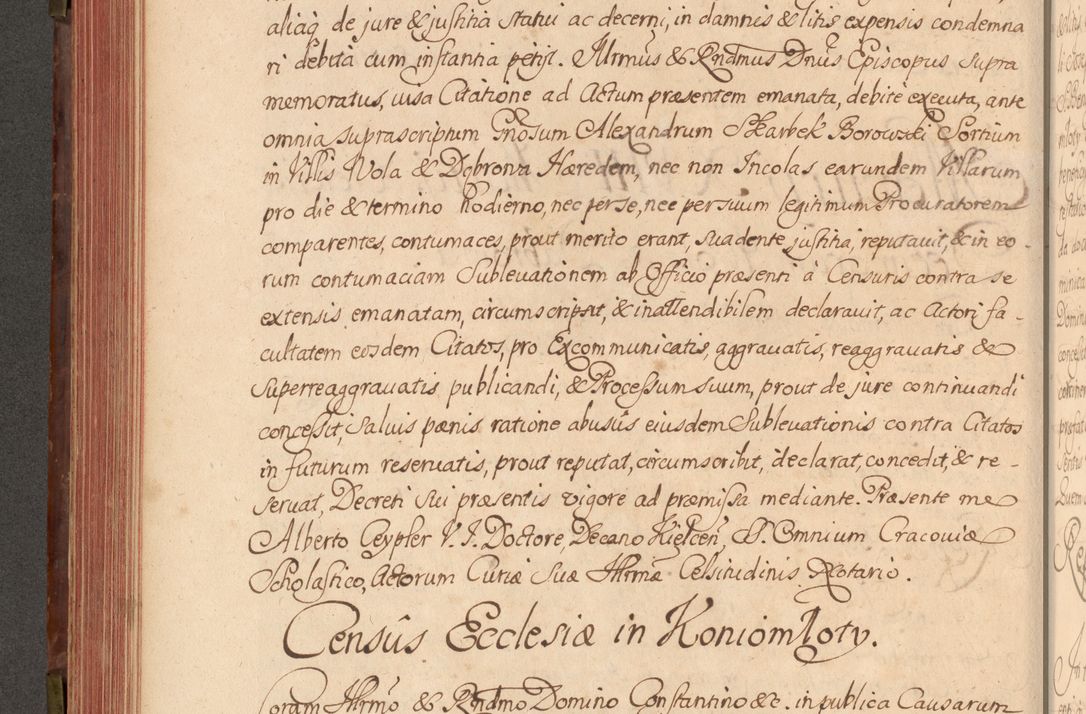 aliaq de jure & justitia statui ac decerni, in damnis & litis expensis condemna
ri debita cum instantia petijt. Illrmus & Rndmus Dnus Episcopus supra
memoratus, visa Citatione ad Actum præsentem emanata, debite executa, ante
omnia suprascriptum Gnosum Alexandrum Skarbek Borowski Sortium
in Villis Wola & Dąbrowa Hæredem, nec non Incolas earundem Villarum
pro die & termino hodierno, nec per se, nec per suum legitimum Procuratorem
comparentes, contumaces, prout merito erant, suadente justitia, reputavit, & in eo-
rum contumaciam Sublevationem ab Officio præsenti à Censuris contra se
extensis emanatam, circumscripsit, & inattendibilem declaravit, ac Actori fa-
cultatem eosdem Citatos, pro Excommunicatis, aggravatis, reaggravatis &
superreaggravatis publicandi, & Processum suum, prout de jure continuandi
concessit, salvis pœnis ratione abusûs eiusdem Sublevationis contra Citatos
in futurum reservatis, prout reputat, circumscribit, declarat, concedit, & re-
servat, Decreti sui præsentis vigore ad præmissa mediante. Præsente me
Alberto Ceypler V. I. Doctore, Decano Kielcen, S. Omnium Cracoviæ
Scholastico, Actorum Curiæ Suæ Illrmæ Celsitudinis Notario.
Censûs Ecclesiæ in Koniomłoty.
Coram Illrmo & Rndmo Domino Constantino &c. in publica Causarum